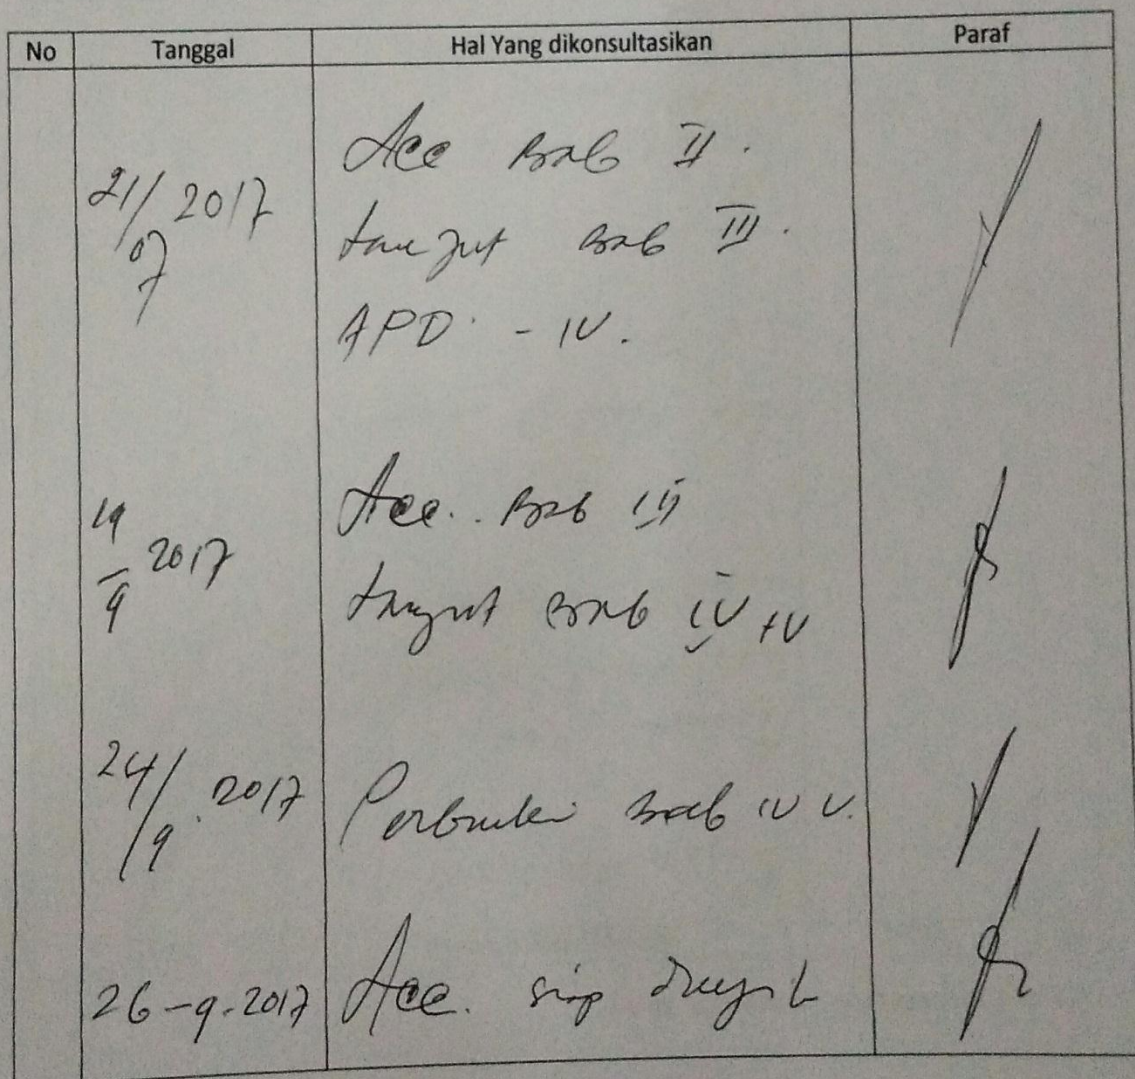 No Tanggal Hal Yang dikonsultasikan Paraf
Acc Bab II.
21/07 2017 Lanjut Bab III.
APD - IV.
19/9 2017 Acc. Bab III
Lanjut Bab IV + V
24/9 2017 Perbaiki Bab IV V.
26-9-2017 Acc. siap diuji